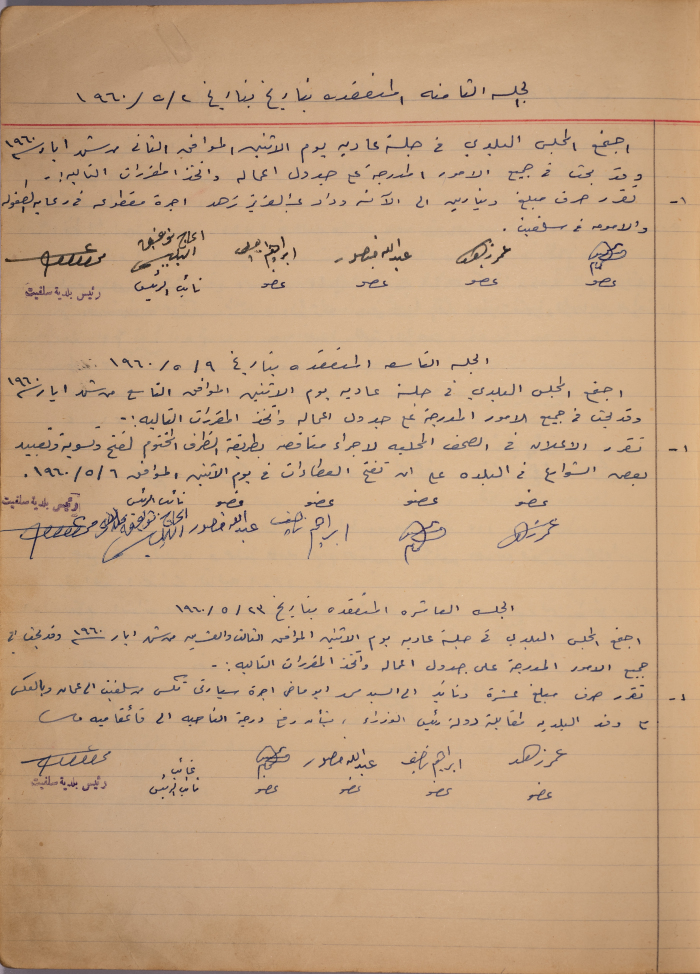 الجلسه الثامنه المنعقده بتاريخ بتاريخ ١٩٦٠/٥/٢
اجتمع المجلس البلدي في جلسة عاديه يوم الاثنين الموافق الثاني من شهر ايار سنة ١٩٦٠
وقد بحث في جميع الامور المدرجة على جدول اعماله واتخذ المقررات التاليه :-
١- تقرر صرف مبلغ دينارين الى الآنسه وداد عبدالعزيز زهد اجرة مقطوعه في رعاية الطفوله
والامومه في سلفيت .
عمر زهد عبدالله منصور ابراهيم الحاج توفيق
عضو عضو عضو عضو نائب الرئيس رئيس بلدية سلفيت
الجلسه التاسعه المنعقده بتاريخ ١٩٦٠/٥/٩
اجتمع المجلس البلدي في جلسة عاديه يوم الاثنين الموافق التاسع من شهر ايار سنة ١٩٦٠
وقد بحث في جميع الامور المدرجة على جدول اعماله واتخذ المقررات التاليه :-
١- تقرر الاعلان في الصحف المحليه لاجراء مناقصه بطريقة الظرف المختوم لفتح وتسوية وتعبيد
بعض الشوارع في البلده على ان تفتح العطاءات في يوم الاثنين الموافق ١٩٦٠/٥/١٦.
عضو عضو عضو عضو نائب الرئيس رئيس بلدية سلفيت
عمر زهد ابراهيم عبدالله منصور الحاج توفيق
الجلسه العاشره المنعقده بتاريخ ١٩٦٠/٥/٢٣
اجتمع المجلس البلدي في جلسة عاديه يوم الاثنين الموافق الثالث والعشرين من شهر ايار سنة ١٩٦٠ وقد بحث في
جميع الامور المدرجة على جدول اعماله واتخذ المقررات التاليه :-
تقرر صرف مبلغ عشرة دنانير الى السيد محمد ابو ماضي اجرة سيارتي تكسي من سلفيت الى عمان وبالعكس
وفد البلديه لمقابلة دولة رئيس الوزراء بشأن رفع درجة الناحيه الى قائمقاميه
عمر زهد ابراهيم عبدالله منصور غائب
عضو عضو عضو عضو نائب الرئيس رئيس بلدية سلفيت